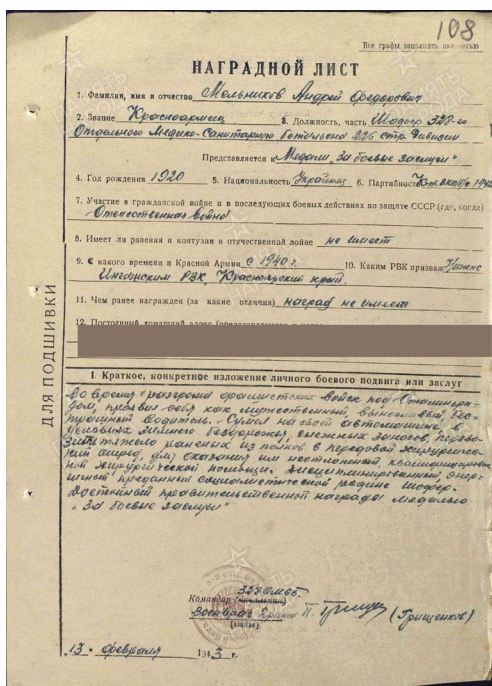 108
Все графы заполнять полностью
НАГРАДНОЙ ЛИСТ
1. Фамилия, имя и отчество Мельников Андрей Федорович
2. Звание Красноармеец 3. Должность, часть Шофер 329-го
Отдельного Медико-Санитарного батальона 226 стр. Дивизии
Представляется к Медали "За боевые заслуги"
4. Год рождения 1920 5. Национальность Украинец 6. Партийность
7. Участие в гражданской войне и в последующих боевых действиях по защите СССР (где, когда)
Отечественная война
8. Имеет ли ранения и контузии в отечественной войне не имеет
9. С какого времени в Красной Армии с 1940 г. 10. Каким РВК призван Нижне
Ингашским РВК, Красноярский край.
11. Чем ранее награжден (за какие отличия) наград не имеет
12. Постоянный домашний адрес
ДЛЯ ПОДШИВКИ
I. Краткое, конкретное изложение личного боевого подвига или заслуг
Во время разгрома фашистских войск под Сталингра-
дом, проявил себя как мужественный, выносливый, бес-
страшный водитель. Сумел на своей автомашине, в
условиях зимнего бездорожья, снежных заносов, перево-
зить тяжело раненых из полков в передовой хирургичес-
кий отряд, для оказания им неотложной, квалифицирован-
ной хирургической помощи. Дисциплинированный, энер-
гичный преданный социалистической родине шофер.
Достойный правительственной награды медалью
"За боевые заслуги"
329 ОМСБ.
Командир (начальник)
Военврач 3 ранга
(звание)
(Грищенков)
"13" февраля 1943 г.